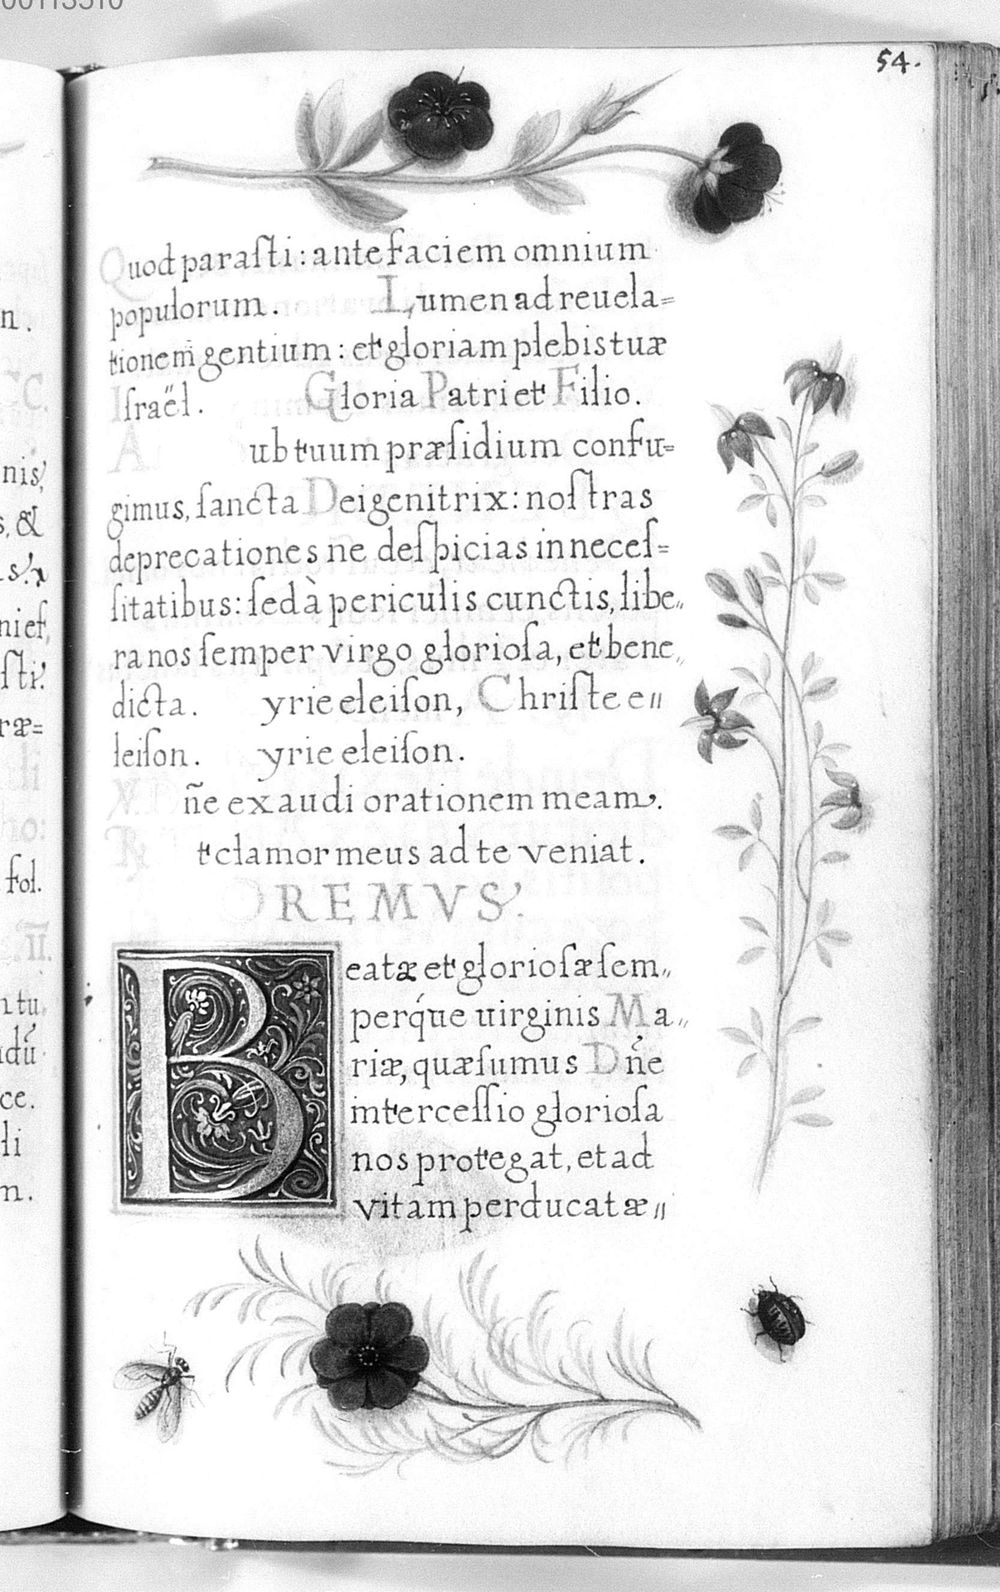 00113510
54.
Quod paraſti: ante faciem omnium
populorum. Lumen ad reuela=
tionem gentium: et gloriam plebis tuæ
Iſraël. Gloria Patri et Filio.
ub tuum præſidium confu=
gimus, ſancta Dei genitrix: noſtras
deprecationes ne deſpicias in neceſ=
ſitatibus: ſed à periculis cunctis, libe„
ra nos ſemper virgo glorioſa, et bene„
dicta. yrie eleiſon, Chriſte e„
leiſon. yrie eleiſon.
V. ñe exaudi orationem meam.
R. t clamor meus ad te veniat.
OREMVS.
Beatæ et glorioſæ ſem„
perq́ue uirginis Ma„
riæ, quæſumus Dñe
interceſſio glorioſa
nos protegat, et ad
vitam perducat æ„
n.
C.
nis,
s, &
nieſ,
ſti:
ræ=
ho:
fol.
II.
ntu,
ce.
li
n.